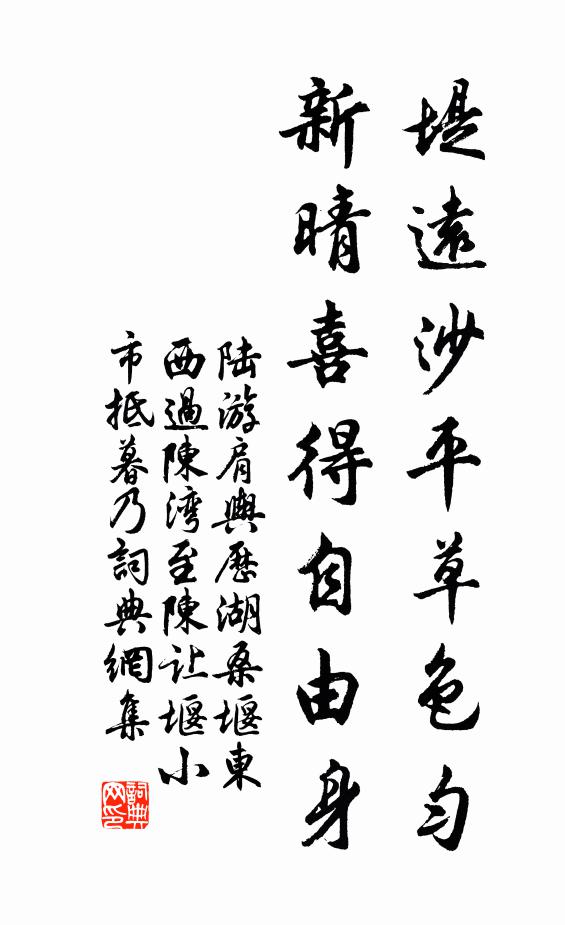 堤遠沙平草色勻
新晴喜得自由身
陆游肩輿歷湖桑堰東
西過陳湾至陳让堰小
市抵暮乃詞典網集
詞典网印